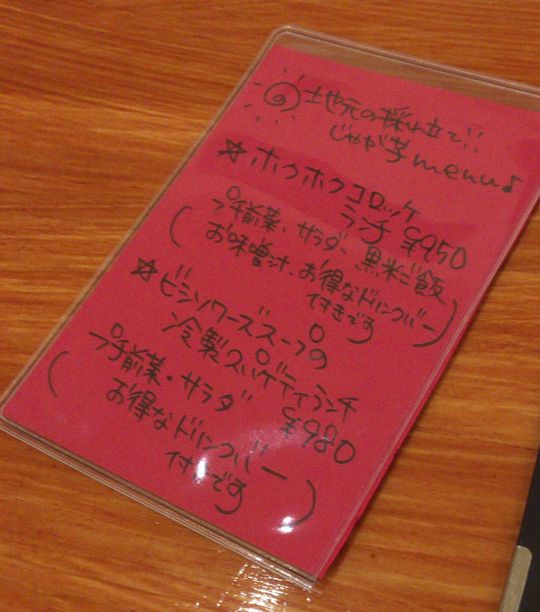 地元の採れ立て
じゃが芋menu♪
☆ホクホクコロッケ
ランチ ¥950
(プチ前菜、サラダ、黒米ご飯
お味噌汁、お得なドリンクバー
付きです)
☆ビシソワーズスープの
冷製スパゲティランチ
¥980
(プチ前菜・サラダ
お得なドリンクバー
付きです)